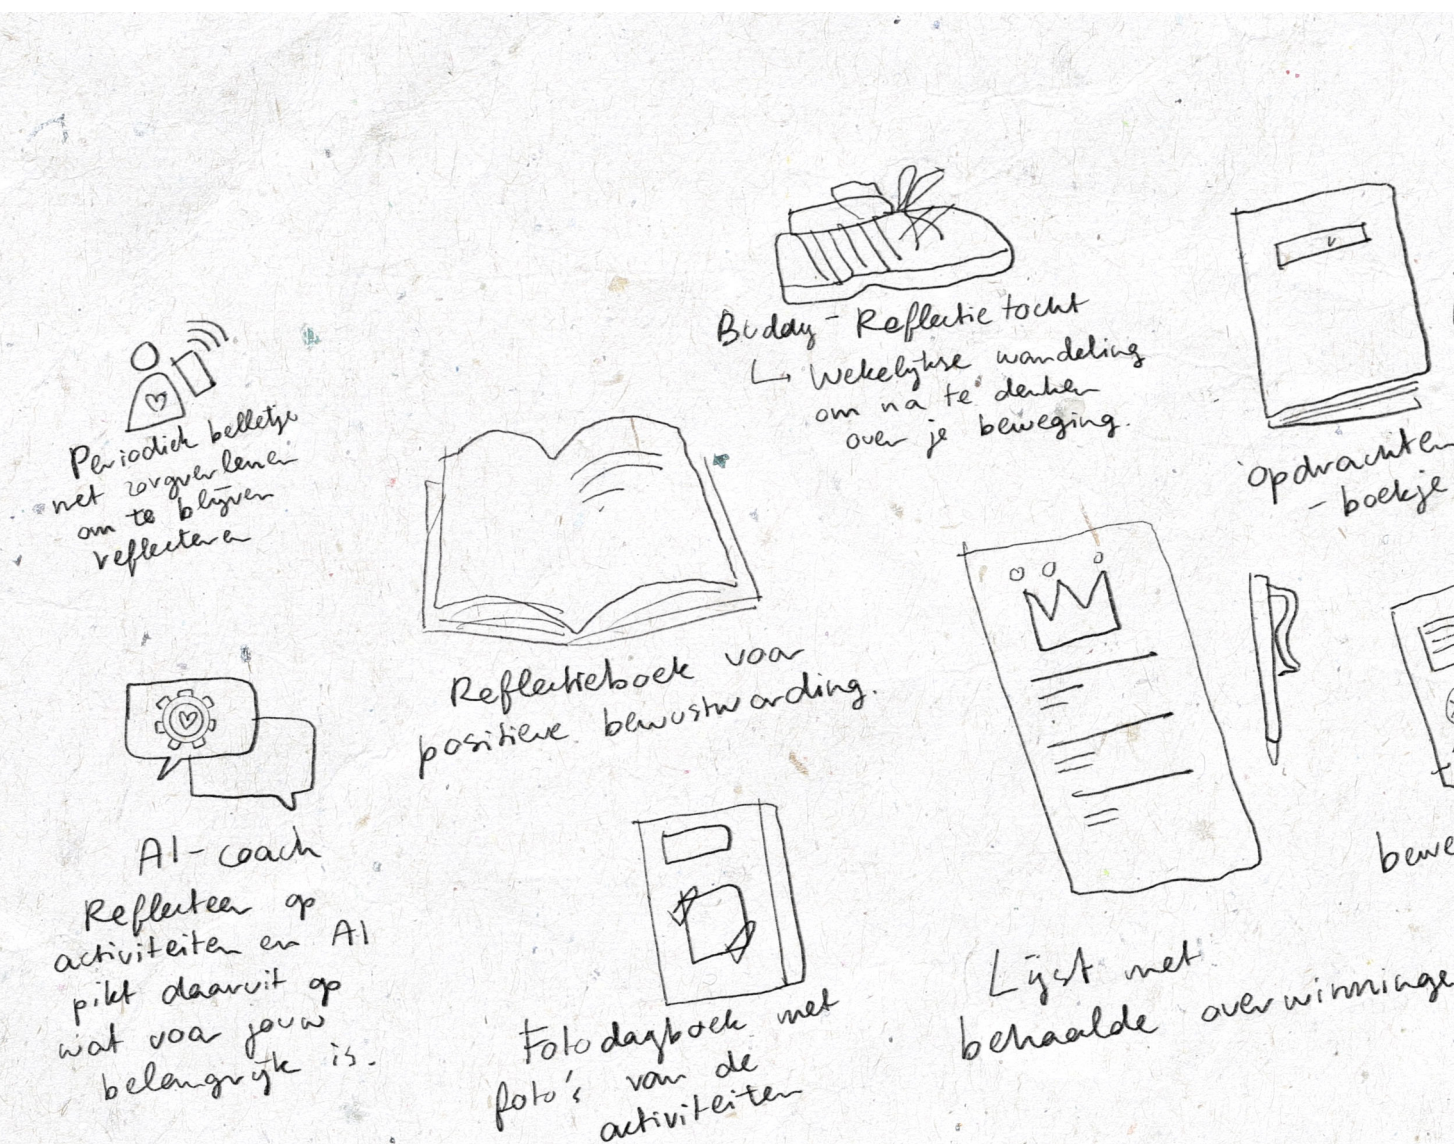 Periodiek belletje
met zorgverlener
om te blijven
reflecteren
Buddy - Reflectie tocht
↳ Wekelijkse wandeling
om na te denken
over je beweging.
Opdrachten
- boekje
Reflectieboek voor
positieve bewustwording.
AI-coach
Reflecteer op
activiteiten en AI
pikt daaruit op
wat voor jouw
belangrijk is.
Fotodagboek met
foto's van de
activiteiten
Lijst met
behaalde overwinninge
bewe